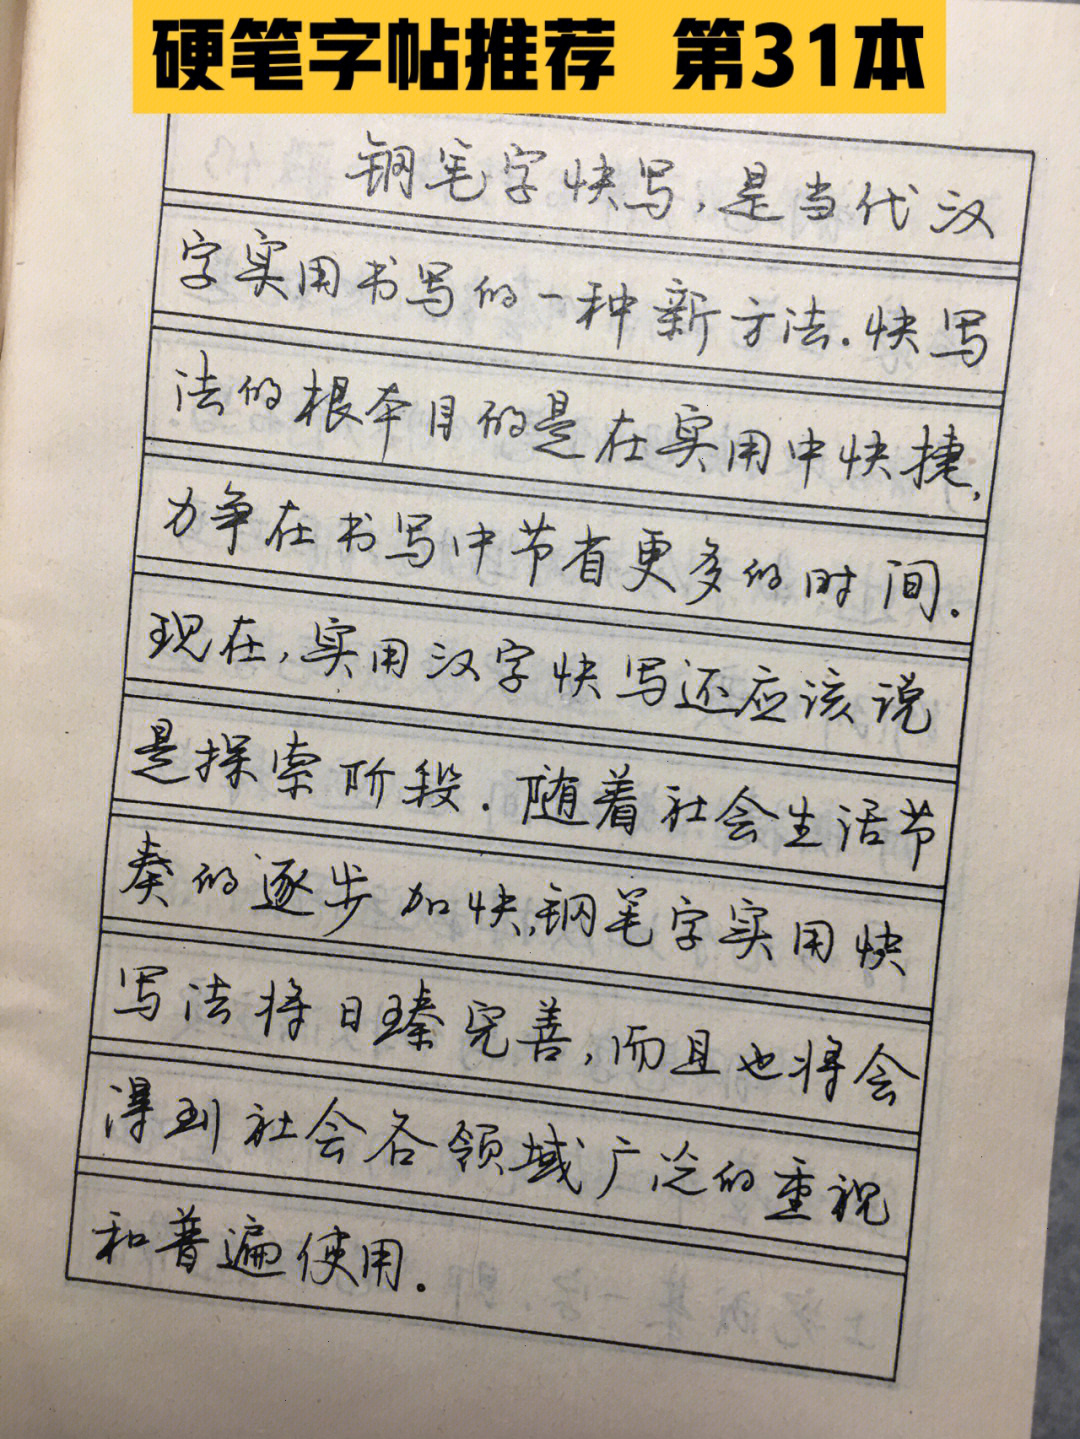 硬笔字帖推荐 第31本
钢笔字快写,是当代汉
字实用书写的一种新方法.快写
法的根本目的是在实用中快捷,
力争在书写中节省更多的时间.
现在,实用汉字快写还应该说
是探索阶段.随着社会生活节
奏的逐步加快,钢笔字实用快
写法将日臻完善,而且也将会
得到社会各领域广泛的重视
和普遍使用.